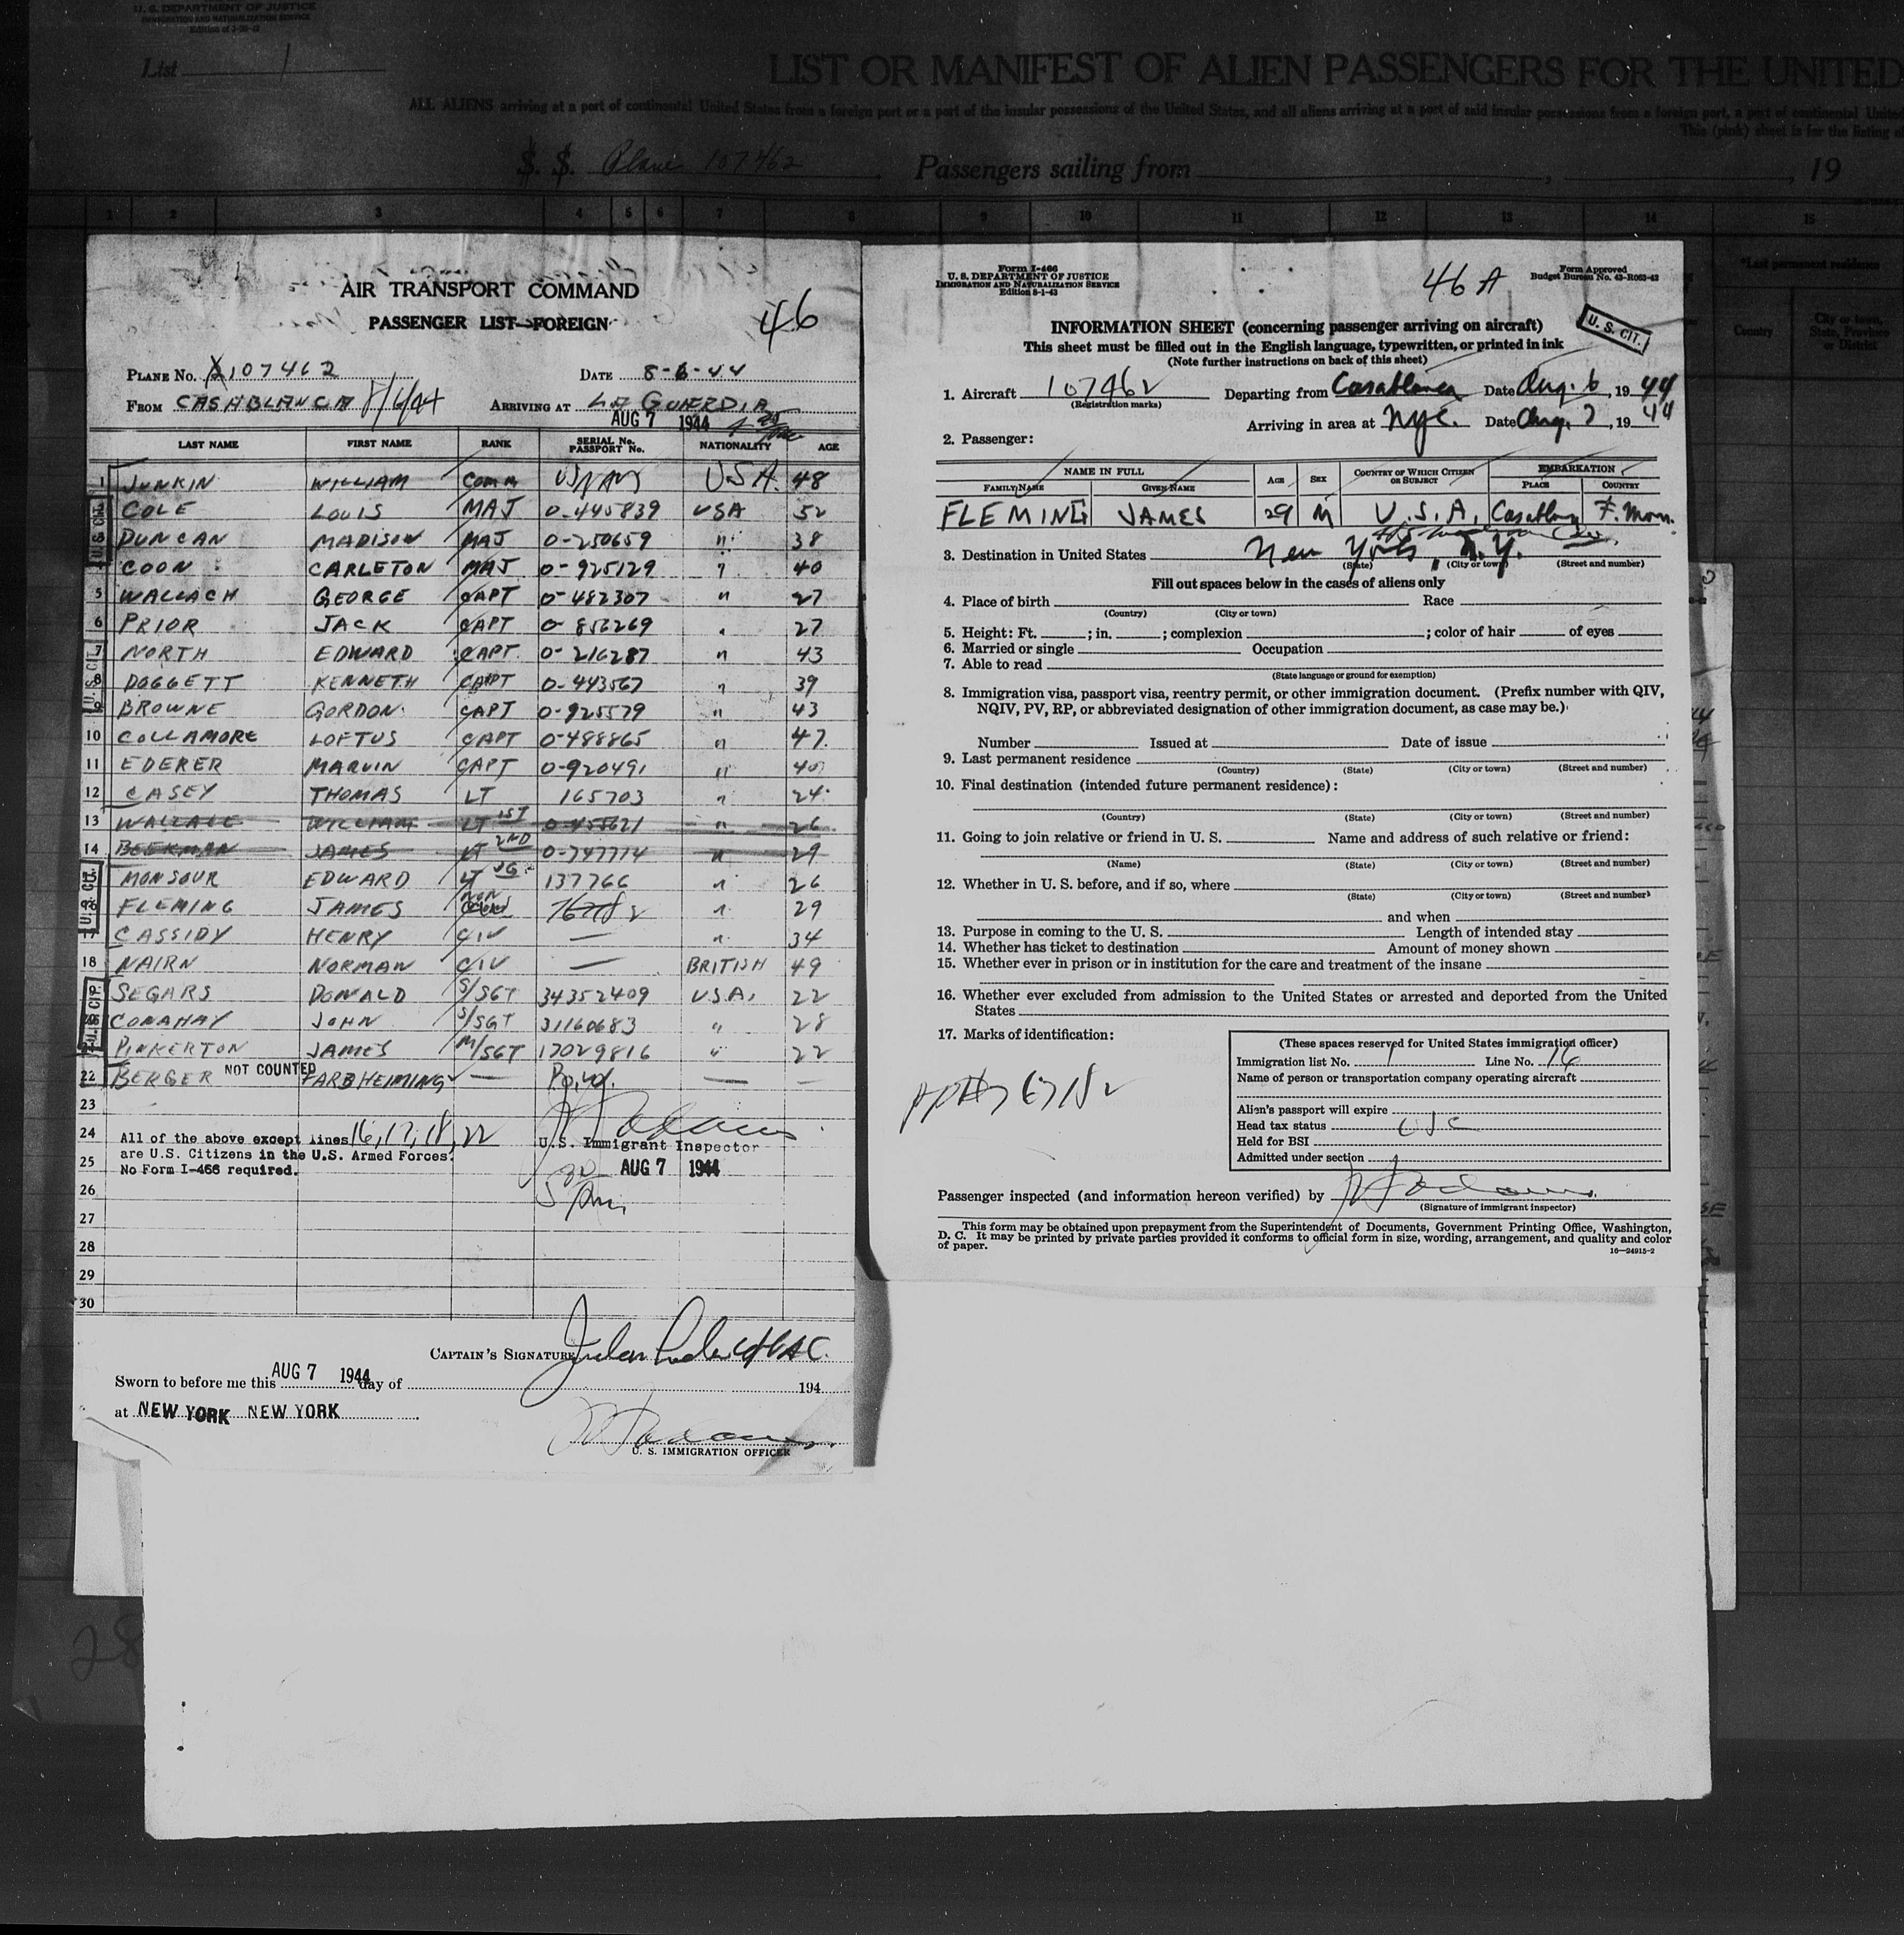 U. S. DEPARTMENT OF JUSTICE
IMMIGRATION AND NATURALIZATION SERVICE
List 1
LIST OR MANIFEST OF ALIEN PASSENGERS FOR THE UNITED
ALL ALIENS arriving at a port of continental United States from a foreign port or a port of the insular possessions of the United States, and all aliens arriving at a port of said insular possessions from a foreign port, a port of continental United
This (pink) sheet is for the listing
S. S. Plane 107462 Passengers sailing from , , 19
1 2 3 4 5 6 7 8 9 10 11 12 13 14 15
*Last permanent residence
Country City or town, State, Province or District
AIR TRANSPORT COMMAND
PASSENGER LIST—FOREIGN
46
PLANE NO. 107462 DATE 8-6-44
FROM CASABLANCA 8/6/44 ARRIVING AT LA GUARDIA
AUG 7 1944
LAST NAME FIRST NAME RANK SERIAL No. PASSPORT No. NATIONALITY AGE
1 JUNKIN WILLIAM COMM US NAVY USA. 48
COLE LOUIS MAJ 0-445839 USA 52
3 DUNCAN MADISON MAJ 0-250659 " 38
COON CARLETON MAJ 0-925129 " 40
5 WALLACH GEORGE CAPT 0-482307 " 27
6 PRIOR JACK CAPT 0-856269 " 27
7 NORTH EDWARD CAPT. 0-216287 " 43
8 DOGGETT KENNETH CAPT 0-443567 " 39
9 BROWNE GORDON CAPT 0-925579 " 43
10 COLLAMORE LOFTUS CAPT 0-488865 " 47
11 EDERER MARVIN CAPT 0-920491 " 40
12 CASEY THOMAS LT 165703 " 24
13 WALLACE WILLIAM LT 1ST 0-455621 " 26
14 BEEKMAN JAMES LT 2ND 0-747714 " 29
MONSOUR EDWARD LT JG 137766 " 26
FLEMING JAMES 76718 2 " 29
17 CASSIDY HENRY CIV — " 34
18 NAIRN NORMAN CIV — BRITISH 49
SEGARS DONALD S/SGT 34352409 U.S.A. 22
CONAHAY JOHN S/SGT 31160683 " 28
21 PINKERTON JAMES M/SGT 17029816 " 22
22 BERGER NOT COUNTED FARBHEIMING — — —
23
24 All of the above except lines 16, 17, 18, 22 U.S. Immigrant Inspector
are U.S. Citizens in the U.S. Armed Forces.
25 No Form I-466 required. AUG 7 1944
26
27
28
29
30
CAPTAIN'S SIGNATURE
Sworn to before me this AUG 7 1944 day of 194
at NEW YORK NEW YORK
U. S. IMMIGRATION OFFICER
Form I-466
U. S. DEPARTMENT OF JUSTICE
IMMIGRATION AND NATURALIZATION SERVICE
Edition 8-1-43
46 A
Form Approved
Budget Bureau No. 43-R063-42
U. S. CIT.
INFORMATION SHEET (concerning passenger arriving on aircraft)
This sheet must be filled out in the English language, typewritten, or printed in ink
(Note further instructions on back of this sheet)
1. Aircraft 107462 Departing from Casablanca Date Aug. 6, 19 44
(Registration marks)
Arriving in area at NYC. Date Aug. 7, 19 44
2. Passenger:
NAME IN FULL AGE SEX COUNTRY OF WHICH CITIZEN OR SUBJECT EMBARKATION
FAMILY NAME GIVEN NAME PLACE COUNTRY
FLEMING JAMES 29 M U.S.A. Casablanca F. Morr.
3. Destination in United States New York, N.Y.
(State) (City or town) (Street and number)
Fill out spaces below in the cases of aliens only
4. Place of birth Race
(Country) (City or town)
5. Height: Ft. ; in. ; complexion ; color of hair of eyes
6. Married or single Occupation
7. Able to read
(State language or ground for exemption)
8. Immigration visa, passport visa, reentry permit, or other immigration document. (Prefix number with QIV,
NQIV, PV, RP, or abbreviated designation of other immigration document, as case may be.)
Number Issued at Date of issue
9. Last permanent residence
(Country) (State) (City or town) (Street and number)
10. Final destination (intended future permanent residence):
(Country) (State) (City or town) (Street and number)
11. Going to join relative or friend in U. S. Name and address of such relative or friend:
(Name) (State) (City or town) (Street and number)
12. Whether in U. S. before, and if so, where
(State) (City or town) (Street and number)
and when
13. Purpose in coming to the U. S. Length of intended stay
14. Whether has ticket to destination Amount of money shown
15. Whether ever in prison or in institution for the care and treatment of the insane
16. Whether ever excluded from admission to the United States or arrested and deported from the United
States
17. Marks of identification:
(These spaces reserved for United States immigration officer)
Immigration list No. 1 Line No. 16
Name of person or transportation company operating aircraft
Alien's passport will expire
Head tax status USC
Held for BSI
Admitted under section
Passenger inspected (and information hereon verified) by
(Signature of immigrant inspector)
This form may be obtained upon prepayment from the Superintendent of Documents, Government Printing Office, Washington,
D. C. It may be printed by private parties provided it conforms to official form in size, wording, arrangement, and quality and color
of paper.
16—24915-2
28